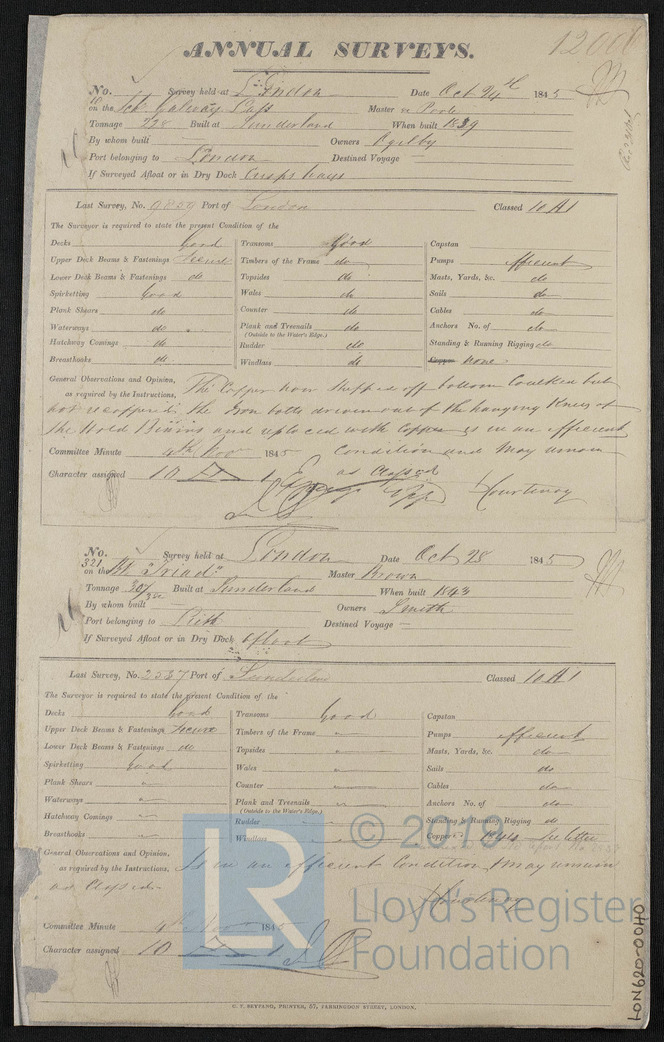 ANNUAL SURVEYS.
No. Survey held at London Date Oct 24th 1845
on the Galway Lass Master Poole
Tonnage 228 Built at Sunderland When built 1839
By whom built Owners Ogilby
Port belonging to London Destined Voyage —
If Surveyed Afloat or in Dry Dock Crisps ways
Last Survey, No. 9859 Port of London Classed 10 A1
The Surveyor is required to state the present Condition of the
Decks Good Transoms Good Capstan
Upper Deck Beams & Fastenings Secure Timbers of the Frame do Pumps efficient
Lower Deck Beams & Fastenings do Topsides do Masts, Yards, &c. do
Spirketting Good Wales do Sails do
Plank Shears do Counter do Cables do
Waterways do Plank and Treenails do Anchors No. of do
(Outside to the Water's Edge.)
Hatchway Comings do Rudder do Standing & Running Rigging do
Breasthooks do Windlass do Copper none
General Observations and Opinion, The Copper now stripped off bottom Caulked but
as required by the Instructions,
not recoppered the Iron bolts driven out of the hanging Knees of
the Hold Beams and replaced with Copper is in an efficient
Committee Minute 4th Nov 1845 condition and May remain
Character assigned 10 A 1 as Classed
Courtenay
No. 321 Survey held at London Date Oct 28 1845
on the Bk "Triad" Master Brown
Tonnage 307 Built at Sunderland When built 1843
By whom built — Owners Smith
Port belonging to Leith Destined Voyage —
If Surveyed Afloat or in Dry Dock afloat
Last Survey, No. 2237 Port of Sunderland Classed 10 A1
The Surveyor is required to state the present Condition of the
Decks Good Transoms Good Capstan
Upper Deck Beams & Fastenings Secure Timbers of the Frame Pumps efficient
Lower Deck Beams & Fastenings do Topsides Masts, Yards, &c. do
Spirketting Good Wales Sails do
Plank Shears Counter Cables do
Waterways Plank and Treenails Anchors No. of do
(Outside to the Water's Edge.)
Hatchway Comings Rudder Standing & Running Rigging do
Breasthooks Windlass Copper see letter
General Observations and Opinion, Is in an efficient Condition May remain
as required by the Instructions,
as Classed
Courtenay
Committee Minute 4th Nov 1845
Character assigned 10 A 1
© 2019
LR
Lloyd's Register
Foundation
LON620-0040
C. F. SEYFANG, PRINTER, 57, FARRINGDON STREET, LONDON.